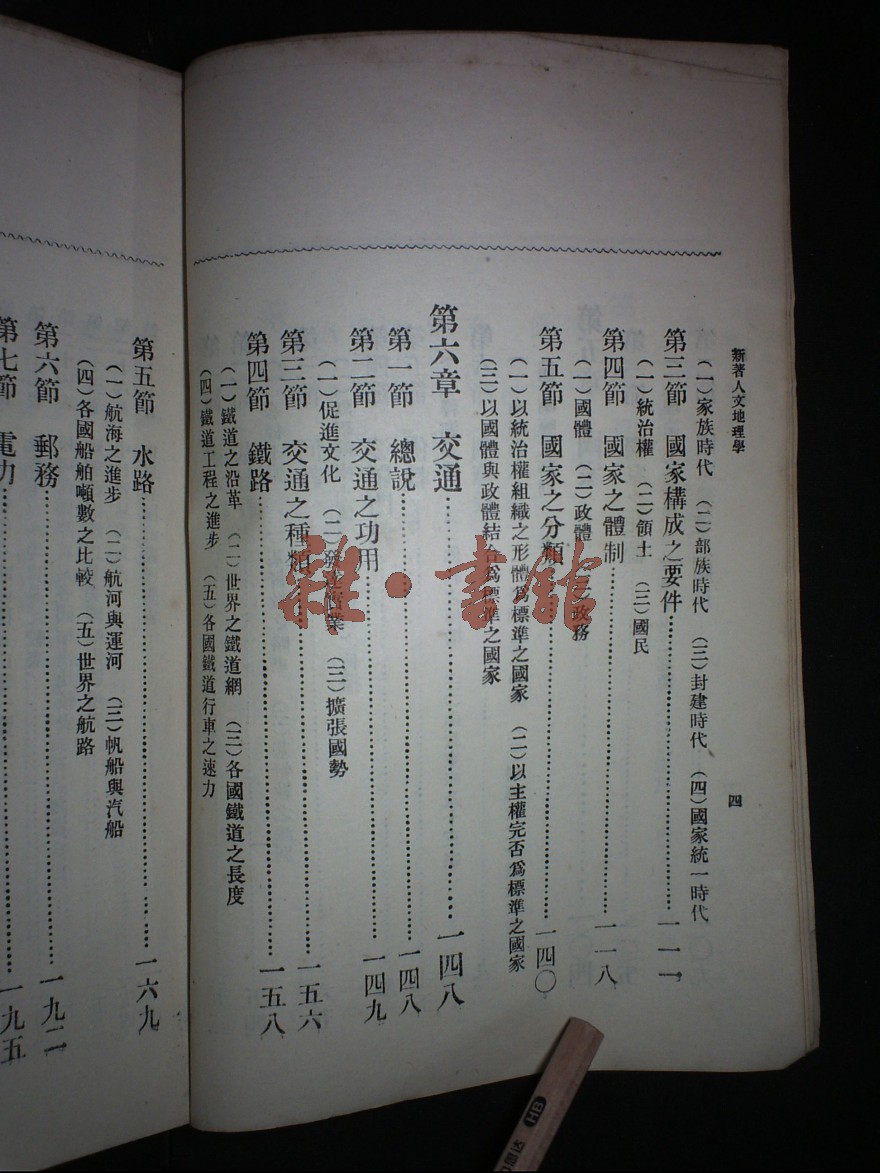 新著人文地理學
四
(一)家族時代 (二)部族時代 (三)封建時代 (四)國家統一時代
第三節 國家構成之要件……一一一
(一)統治權 (二)領土 (三)國民
第四節 國家之體制……一一八
(一)國體 (二)政體 (三)政務
第五節 國家之分類……一四〇
(一)以統治權組織之形體爲標準之國家 (二)以主權完否爲標準之國家
(三)以國體與政體結合爲標準之國家
第六章 交通……一四八
第一節 總說……一四八
第二節 交通之功用……一四九
(一)促進文化 (二)發達實業 (三)擴張國勢
第三節 交通之種類……一五六
第四節 鐵路……一五八
(一)鐵道之沿革 (二)世界之鐵道網 (三)各國鐵道之長度
(四)鐵道工程之進步 (五)各國鐵道行車之速力
第五節 水路……一六九
(一)航海之進步 (二)航河與運河 (三)帆船與汽船
(四)各國船舶噸數之比較 (五)世界之航路
第六節 郵務……一九二
第七節 電力……一九五
雜·書館
HB
思达